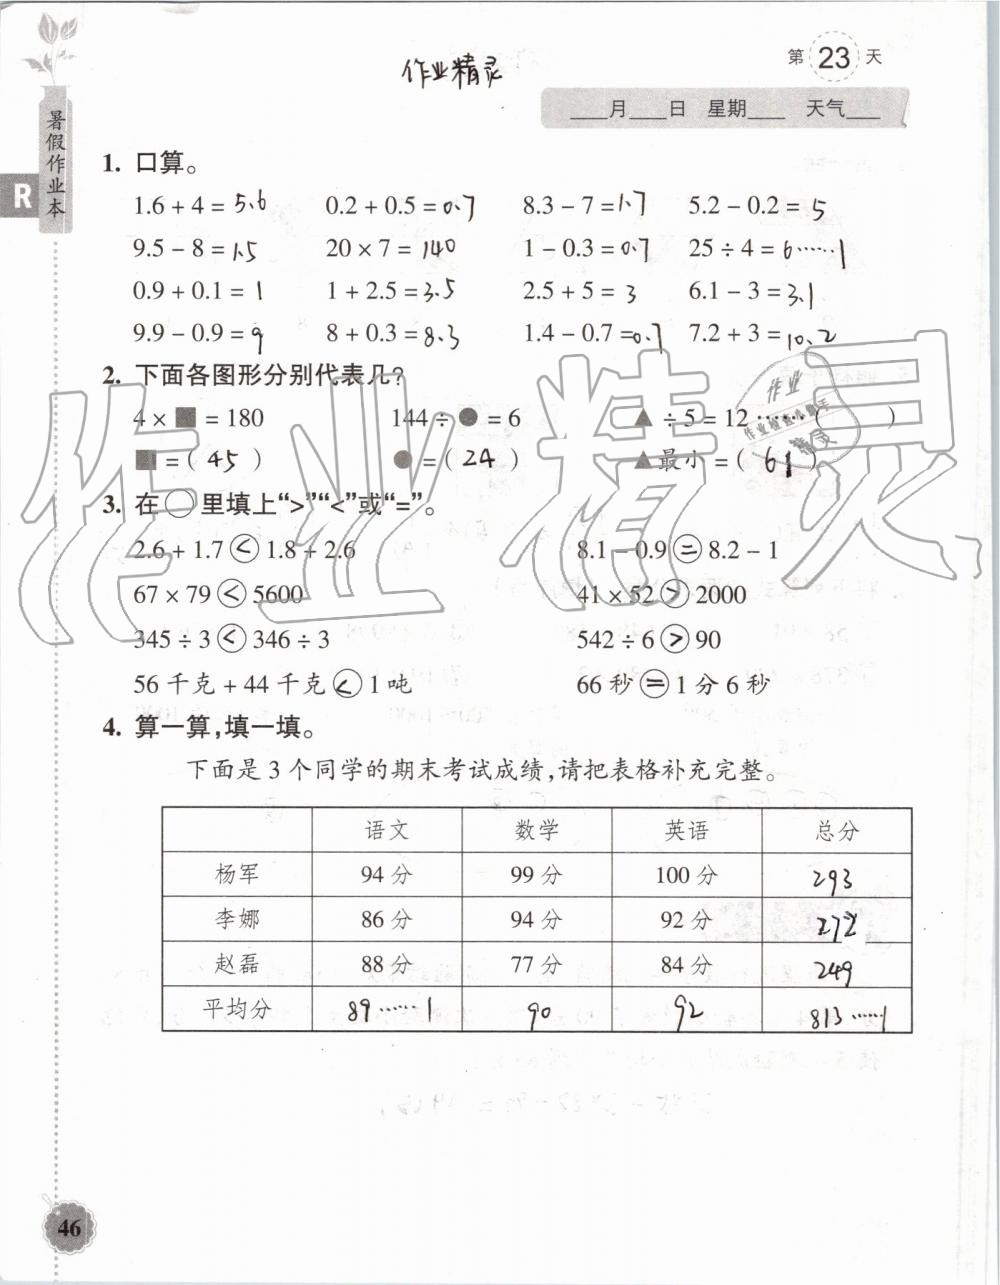 第23天
作业精灵
____月____日 星期____ 天气____
暑假作业本
R
1. 口算。
1.6 + 4 = 5.6 0.2 + 0.5 = 0.7 8.3 − 7 = 1.7 5.2 − 0.2 = 5
9.5 − 8 = 1.5 20 × 7 = 140 1 − 0.3 = 0.7 25 ÷ 4 = 6……1
0.9 + 0.1 = 1 1 + 2.5 = 3.5 2.5 + 5 = 3 6.1 − 3 = 3.1
9.9 − 0.9 = 9 8 + 0.3 = 8.3 1.4 − 0.7 = 0.7 7.2 + 3 = 10.2
2. 下面各图形分别代表几?
4 × ■ = 180 144 ÷ ● = 6 ▲ ÷ 5 = 12 ……( )
■ = ( 45 ) ● = ( 24 ) ▲最小 = ( 61 )
3. 在○里填上“>”“<”或“=”。
2.6 + 1.7 < 1.8 + 2.6 8.1 − 0.9 = 8.2 − 1
67 × 79 < 5600 41 × 52 > 2000
345 ÷ 3 < 346 ÷ 3 542 ÷ 6 > 90
56 千克 + 44 千克 < 1 吨 66 秒 = 1 分 6 秒
4. 算一算,填一填。
下面是 3 个同学的期末考试成绩,请把表格补充完整。
语文 数学 英语 总分
杨军 94 分 99 分 100 分 293
李娜 86 分 94 分 92 分 272
赵磊 88 分 77 分 84 分 249
平均分 89……1 90 92 813……1
46
作业精灵